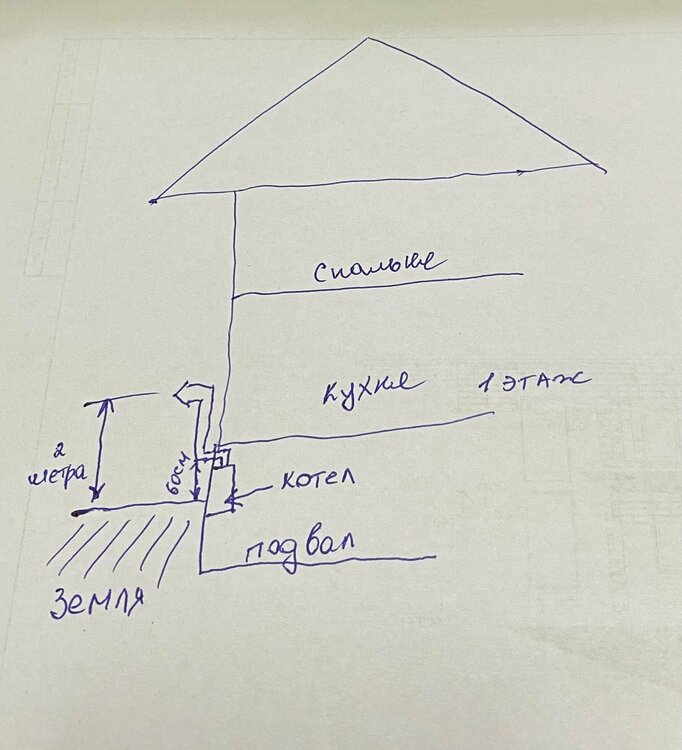 спальня
кухня 1 этаж
2
метра
60см
котел
подвал
Земля